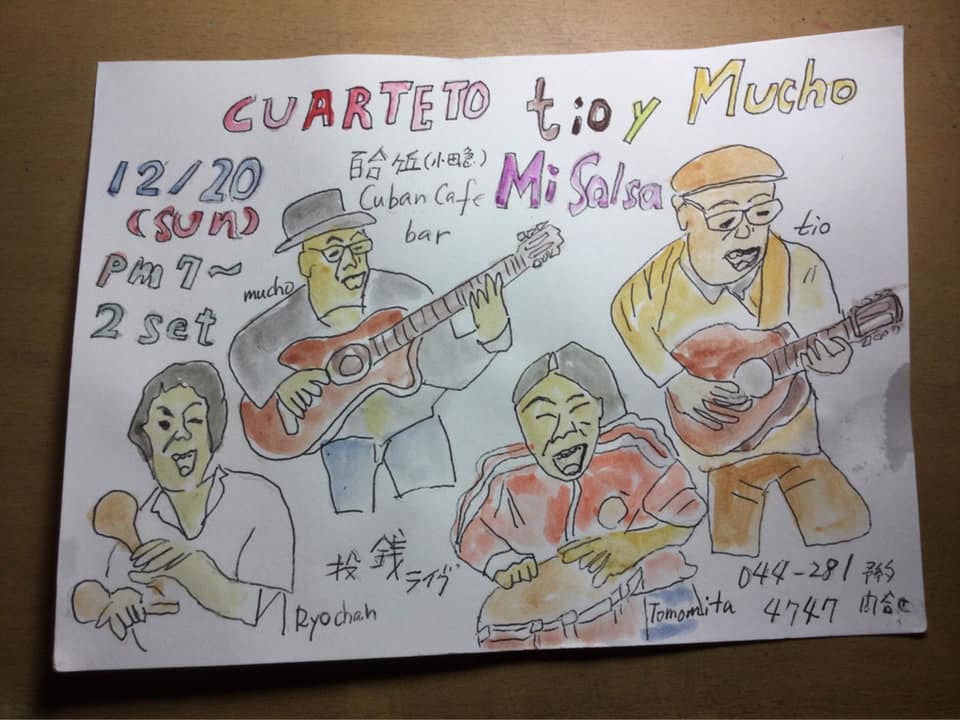 CUARTETO tio y Mucho
12/20
(sun)
pm 7〜
2 set
百合ヶ丘(小田急)
Cuban Cafe
bar
Mi Salsa
mucho
tio
投銭ライヴ
Ryochan
Tomomita
044-281 予約
4747 問合せ